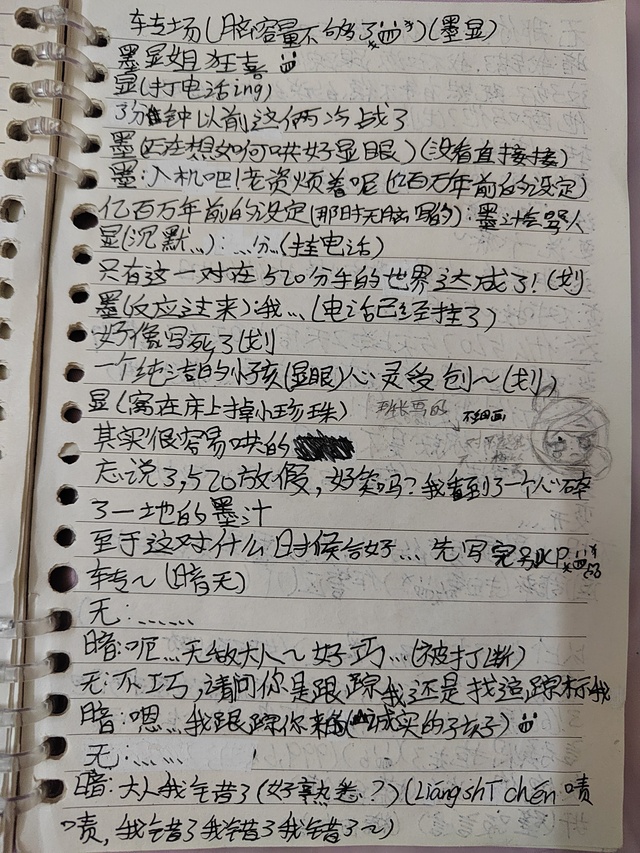 车专场(脑容量不够了)(墨显)
墨显姐狂喜
显(打电话ing)
3分钟以前这俩冷战了
墨(还在想如何哄好显眼)(没看直接接)
墨:入机吧!老资烦着呢(亿百万年前的设定)
亿百万年前的设定(那时无脑写的):墨汁会骂人
显(沉默...):...分(挂电话)
只有这一对在520分手的世界达成了!(划
墨(反应过来):我...(电话已经挂了)
好像写死了(划
一个纯洁的小孩(显眼)心灵受创~(划)
显(窝在床上掉小珍珠)
班长画的
不细画
其实很容易哄的
忘说了,520放假,好笑吗?我看到了一个心碎
了一地的墨汁
至于这对什么时候合好...先写完别CP
车专~(暗无)
无:......
暗:呃...无敌大人~好巧...(被打断)
无:不巧,请问你是跟踪我还是找追踪标我
暗:嗯...我跟踪你来的(诚实的孩子)
无:......
暗:大人我错了(好熟悉?)(LiangshT chen 啧
啧,我错了我错了我错了~)